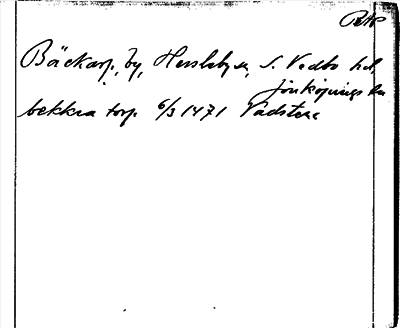 RAP
Bäckarp, by, Hesslebyn, S. Vedbo hd,
Jönköpings län
bekkra torp 6/3 1471 Vadstena